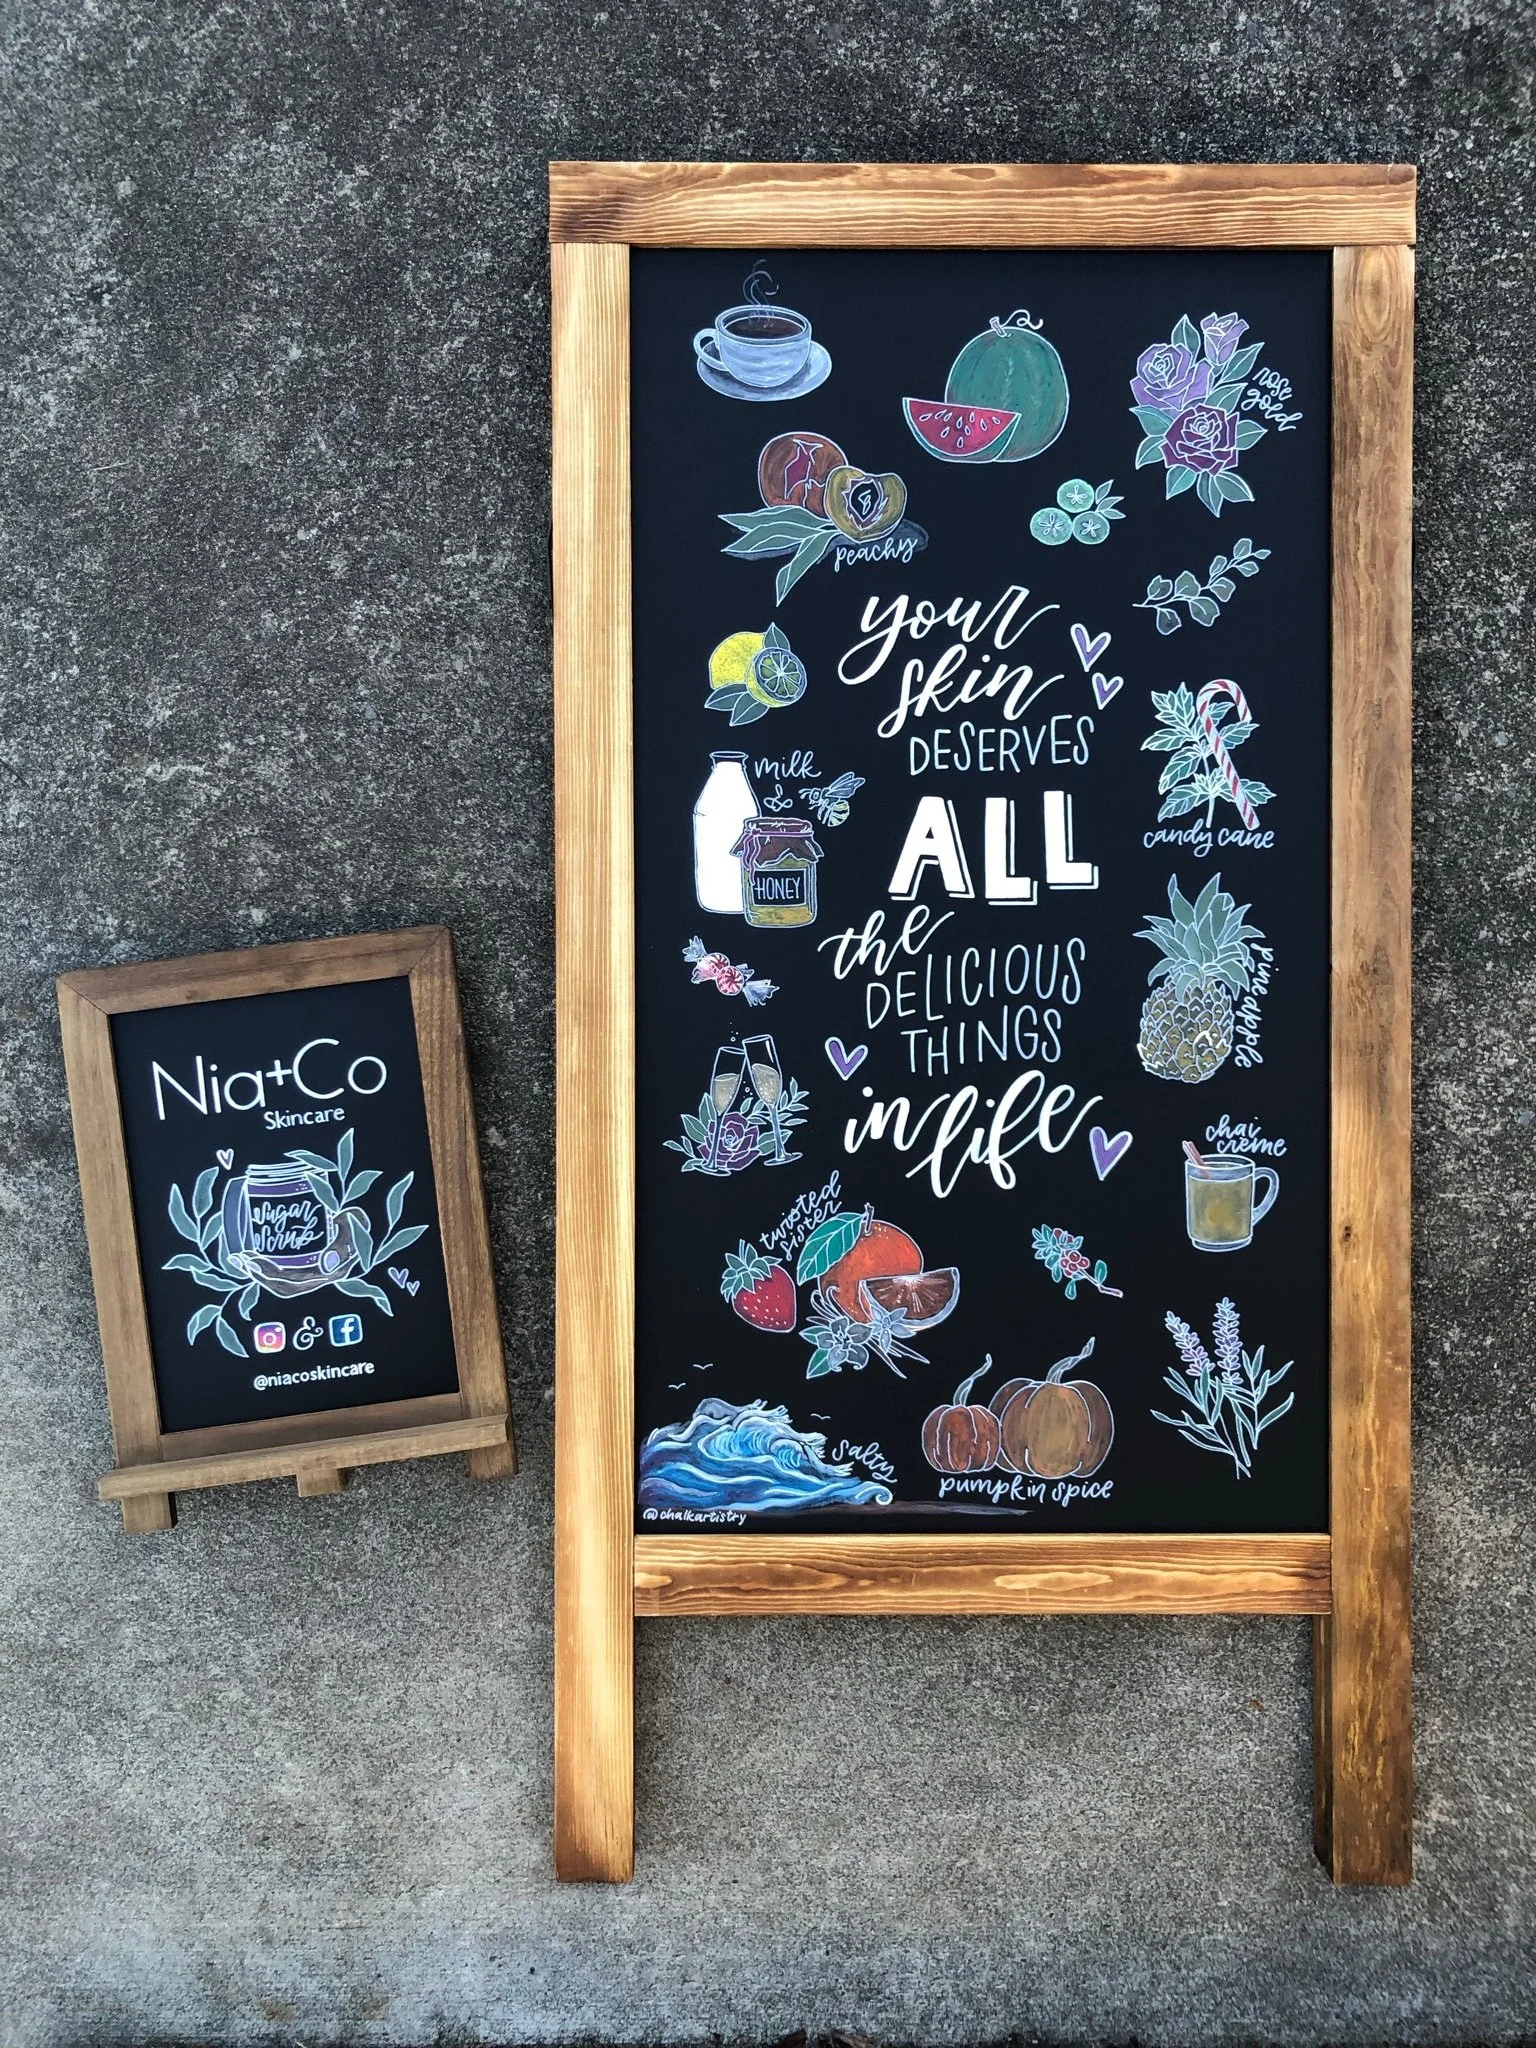 Nia+Co
Skincare
Sugar
Scrub
&
@niacoskincare
rose
gold
peachy
your
skin
DESERVES
ALL
the
DELICIOUS
THINGS
in life
milk
&
HONEY
candy cane
pineapple
chai
creme
twisted
sister
salty
pumpkin spice
@chalkartistry